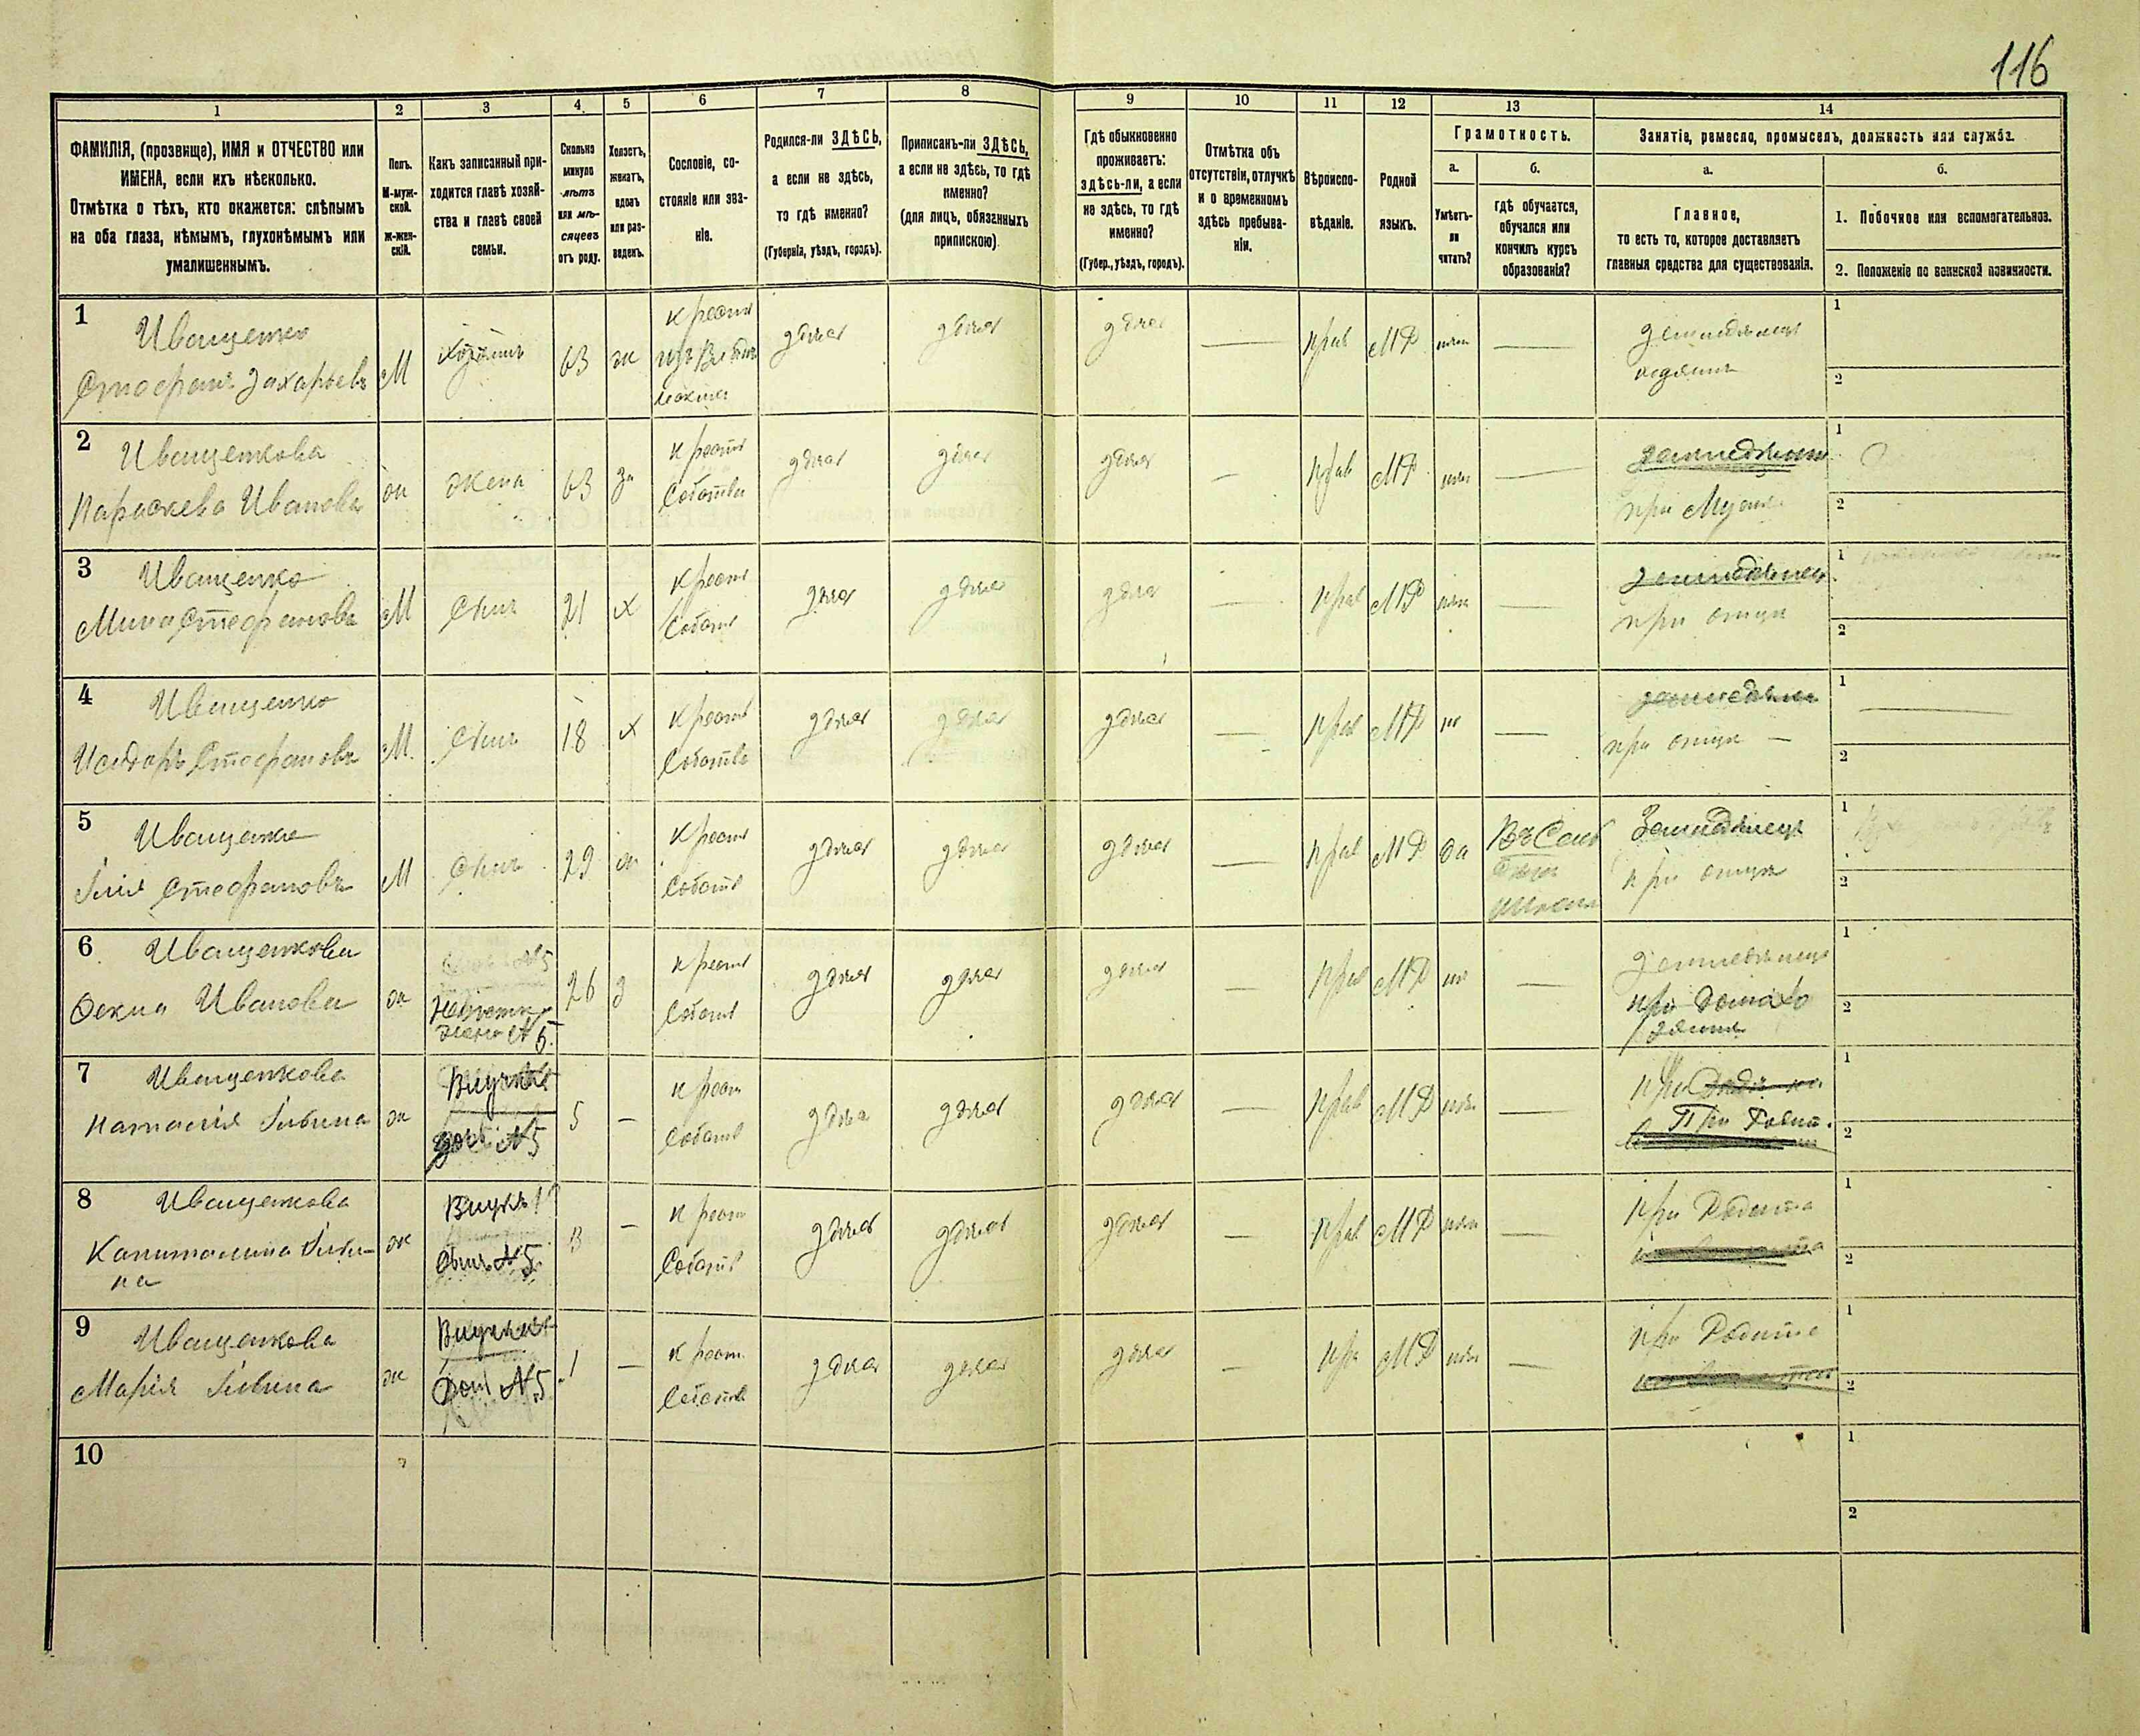 116
1 2 3 4 5 6 7 8 9 10 11 12 13 14
ФАМИЛІЯ, (прозвище), ИМЯ и ОТЧЕСТВО или
ИМЕНА, если ихъ нѣсколько.
Отмѣтка о тѣхъ, кто окажется: слѣпымъ
на оба глаза, нѣмымъ, глухонѣмымъ или
умалишеннымъ.
Полъ.
М-муж-
ской.
ж-жен-
скій.
Какъ записанный при-
ходится главѣ хозяй-
ства и главѣ своей
семьи.
Сколько
минуло
лѣтъ
или мѣ-
сяцевъ
отъ роду.
Холостъ,
женатъ,
вдовъ
или раз-
веденъ.
Сословіе, со-
стояніе или зва-
ніе.
Родился-ли ЗДѢСЬ,
а если не здѣсь,
то гдѣ именно?
(Губернія, уѣздъ, городъ).
Приписанъ-ли ЗДѢСЬ,
а если не здѣсь, то гдѣ
именно?
(для лицъ, обязанныхъ
припискою)
Гдѣ обыкновенно
проживаетъ:
здѣсь-ли, а если
не здѣсь, то гдѣ
именно?
(Губер., уѣздъ, городъ).
Отмѣтка объ
отсутствіи, отлучкѣ
и о временномъ
здѣсь пребыва-
ніи.
Вѣроиспо-
вѣданіе.
Родной
языкъ.
Грамотность.
а.
Умѣетъ-
ли
читать?
б.
гдѣ обучается,
обучался или
кончилъ курсъ
образованія?
Занятіе, ремесло, промыселъ, должность или служба.
а.
Главное,
то есть то, которое доставляетъ
главныя средства для существованія.
б.
1. Побочное или вспомогательное.
2. Положеніе по воинской повинности.
1
Иващенко
Стефанъ Захарьевъ
М
Хозяинъ
63
ж
крестя
здѣся
здѣся
здѣся
прав
МР
земледѣлецъ
хозяинъ
1
2
2
Иващенкова
Параскева Иванова
ж
жена
63
за
крестя
Собствен
здѣся
здѣся
здѣся
прав
МР
земледѣлецъ
при Мужѣ
1
2
3
Иващенко
Мина Стефановъ
М
Сынъ
21
х
крестя
Собств
здѣся
здѣся
здѣся
прав
МР
земледѣлец
при отцѣ
1
2
4
Иващенко
Исидоръ Стефановъ
М.
Сынъ
18
х
крестя
Собств
здѣся
здѣся
здѣся
прав
МР
нѣ
при отцѣ
1
2
5
Иващенко
Іилія Стефановъ
М
Сынъ
29
ж
крестя
Собств
здѣся
здѣся
здѣся
прав
МР
да
Земледѣлецъ
при отцѣ
1
2
6
Иващенкова
Фекла Иванова
ж
Невѣстка
жена №5
26
з
крестя
Собств
здѣся
здѣся
здѣся
прав
МР
земледѣлецъ
1
2
7
Иващенкова
Наталія Іилвина
ж
Внучка
дочь №5
5
крест
Собств
здѣся
здѣся
здѣся
прав
МР
При Родит.
1
2
8
Иващенкова
Капиталина
на
ж
№5
3
крест
Собств
здѣся
здѣся
здѣся
прав
МР
при Родите
1
2
9
Иващенкова
Марія Іилвина
ж
Внучка
Дочь №5
1
крест.
Собств
здѣся
здѣся
здѣся
пра
МР
при Родите
1
2
10
1
2